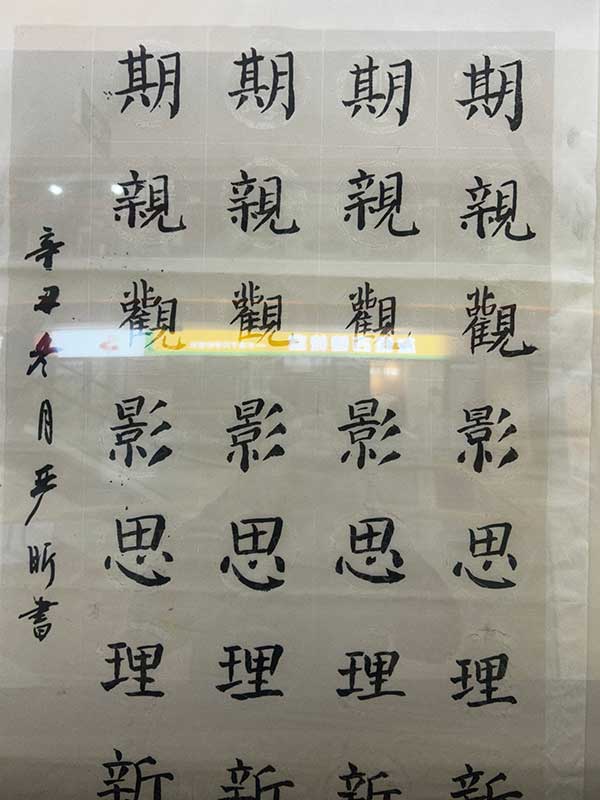 期親觀影思理新
期親觀影思理新
期親觀影思理新
期親觀影思理新
辛丑冬月严昕書